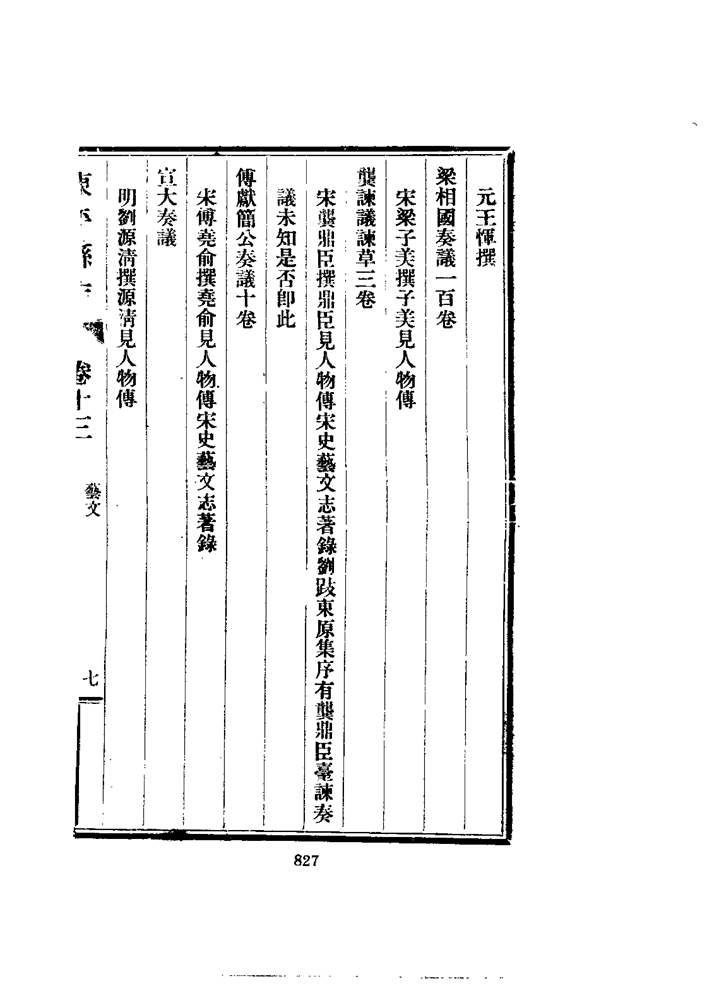 元王惲撰
梁相國奏議一百卷
宋梁子美撰子美見人物傳
龔諫議諫草三卷
宋龔鼎臣撰鼎臣見人物傳宋史藝文志著錄劉跂東原集序有龔鼎臣臺諫奏
議未知是否卽此
傅獻簡公奏議十卷
宋傅堯俞撰堯俞見人物傳宋史藝文志著錄
宣大奏議
明劉源淸撰源淸見人物傳
東平縣志 卷十三 藝文 七
827